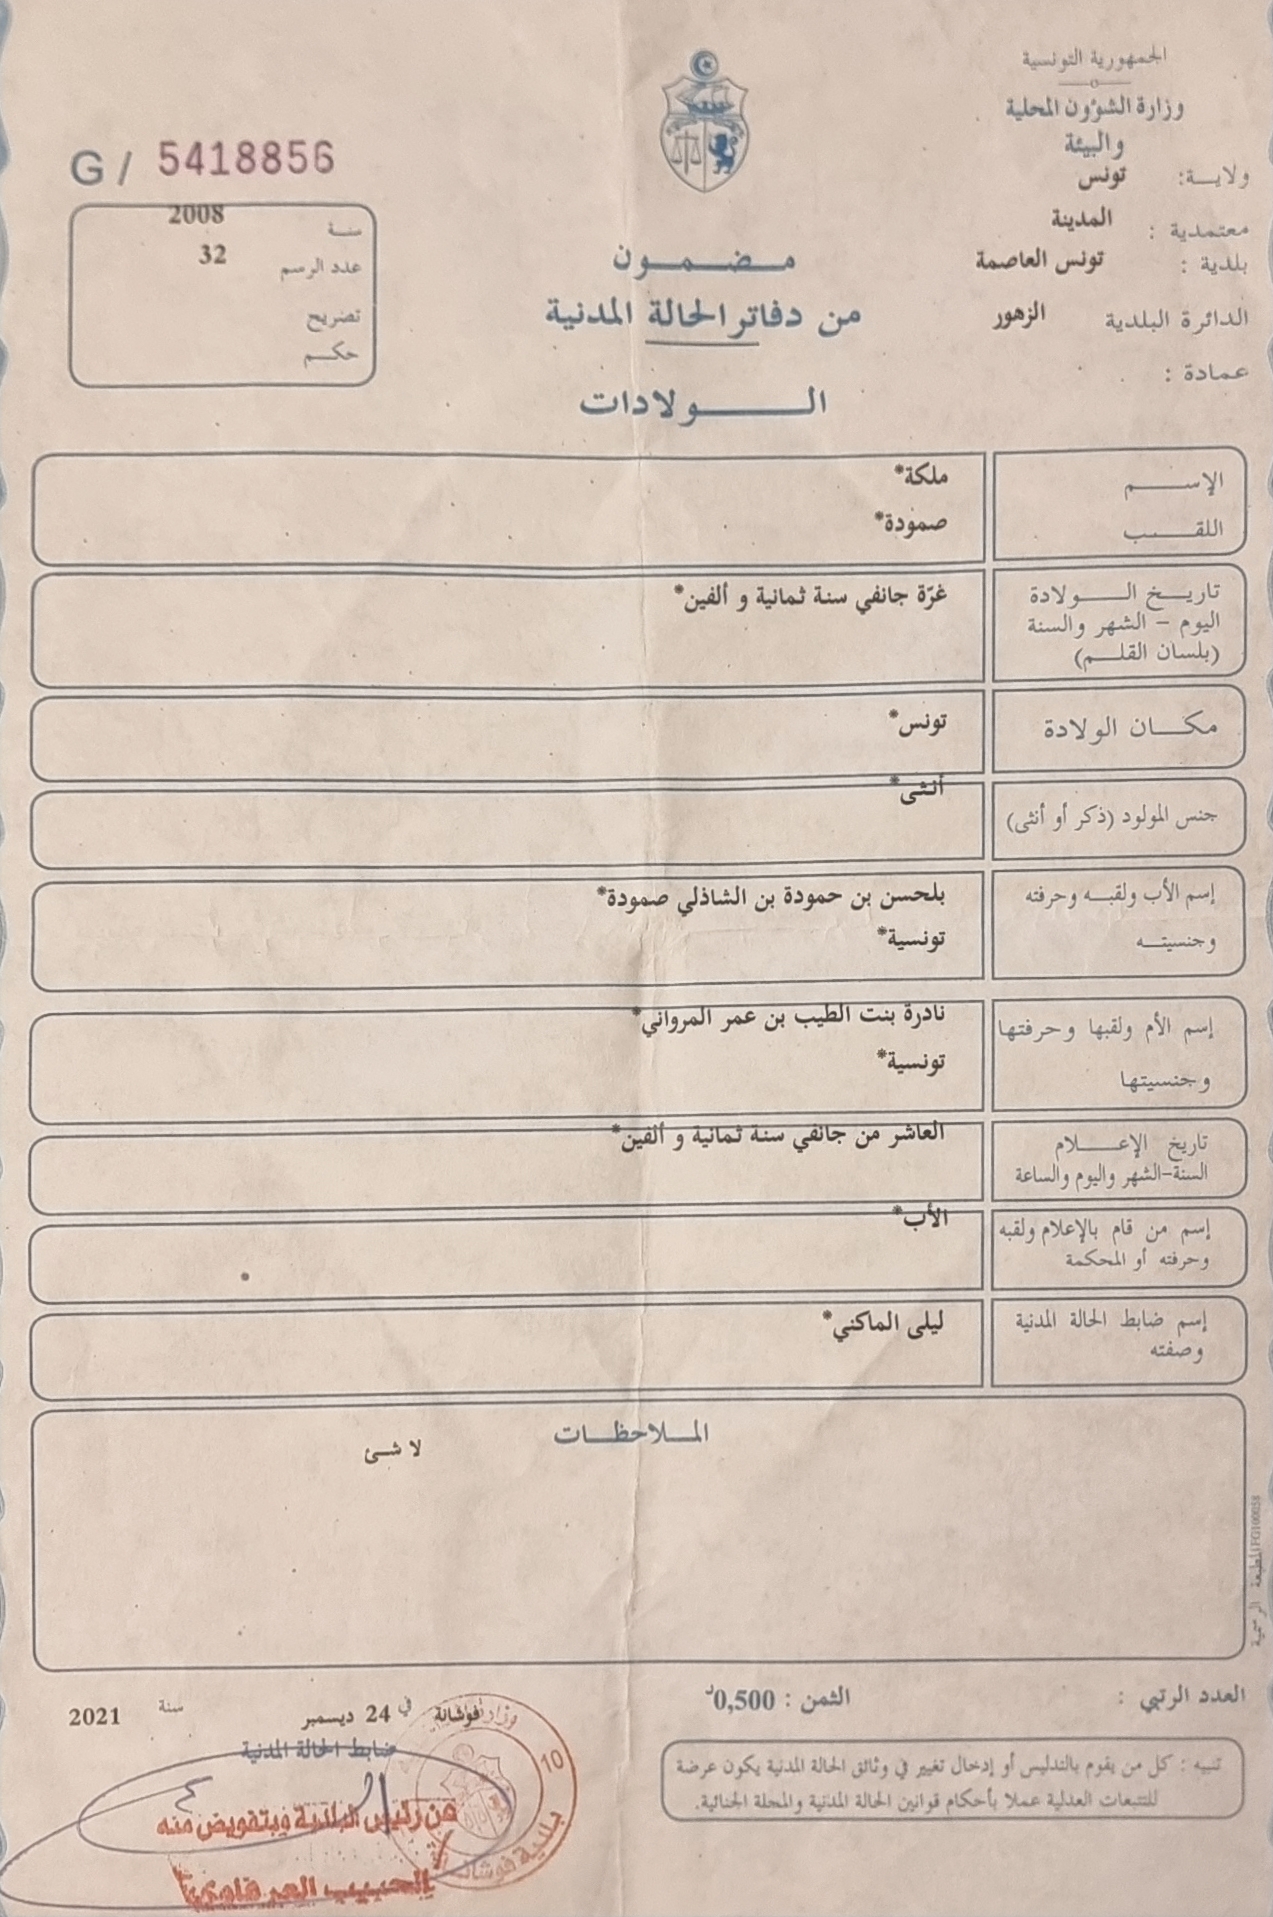 الجمهورية التونسية
وزارة الشؤون المحلية
والبيئة
ولايـة: تونس
معتمدية : المدينة
بلدية : تونس العاصمة
الدائرة البلدية الزهور
عمادة :
G / 5418856
سنة 2008
عدد الرسم 32
تصريح
حكم
مضمون
من دفاتر الحالة المدنية
الولادات
الإسم ملكة*
اللقب صمودة*
تاريخ الولادة غرّة جانفي سنة ثمانية و ألفين*
اليوم - الشهر والسنة
(بلسان القلم)
مكان الولادة تونس*
جنس المولود (ذكر أو أنثى) أنثى*
إسم الأب ولقبه وحرفته بلحسن بن حمودة بن الشاذلي صمودة*
وجنسيته تونسية*
إسم الأم ولقبها وحرفتها نادرة بنت الطيب بن عمر المرواني*
وجنسيتها تونسية*
تاريخ الإعلام العاشر من جانفي سنة ثمانية و ألفين*
السنة-الشهر واليوم والساعة
إسم من قام بالإعلام ولقبه الأب*
وحرفته أو المحكمة
إسم ضابط الحالة المدنية ليلى الماكني*
وصفته
الملاحظات
لا شئ
المطبعة الرسمية FG100058
العدد الرتبي :
الثمن : 0,500د
تنبيه : كل من يقوم بالتدليس أو إدخال تغيير في وثائق الحالة المدنية يكون عرضة
للتتبعات العدلية عملا بأحكام قوانين الحالة المدنية والمجلة الجنائية.
فوشانة في 24 ديسمبر سنة 2021
ضابط الحالة المدنية
عن رئيس البلدية وبتفويض منه
الحبيب
10
بلدية فوشانة